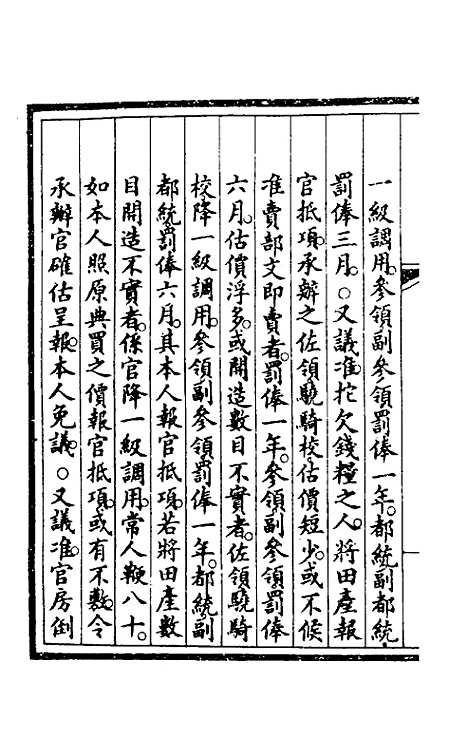 一級調用。參領副參領罰俸一年。都統副都統.
罰俸三月。○又議准拕欠錢糧之人。將田產報
官抵項。承辦之佐領驍騎校。估價短少。或不候
准賣部文即賣者。罰俸一年。參領副參領罰俸
六月。估價浮多。或開造數目不實者。佐領驍騎
校降一級調用。參領副參領罰俸一年。都統副
都統罰俸六月。其本人報官抵項。若將田產數
目開造不實者。係官降一級調用。常人鞭八十。
如本人照原典買之價報官抵項。或有不敷。令
承辦官確估呈報。本人免議。○又議准。官房倒